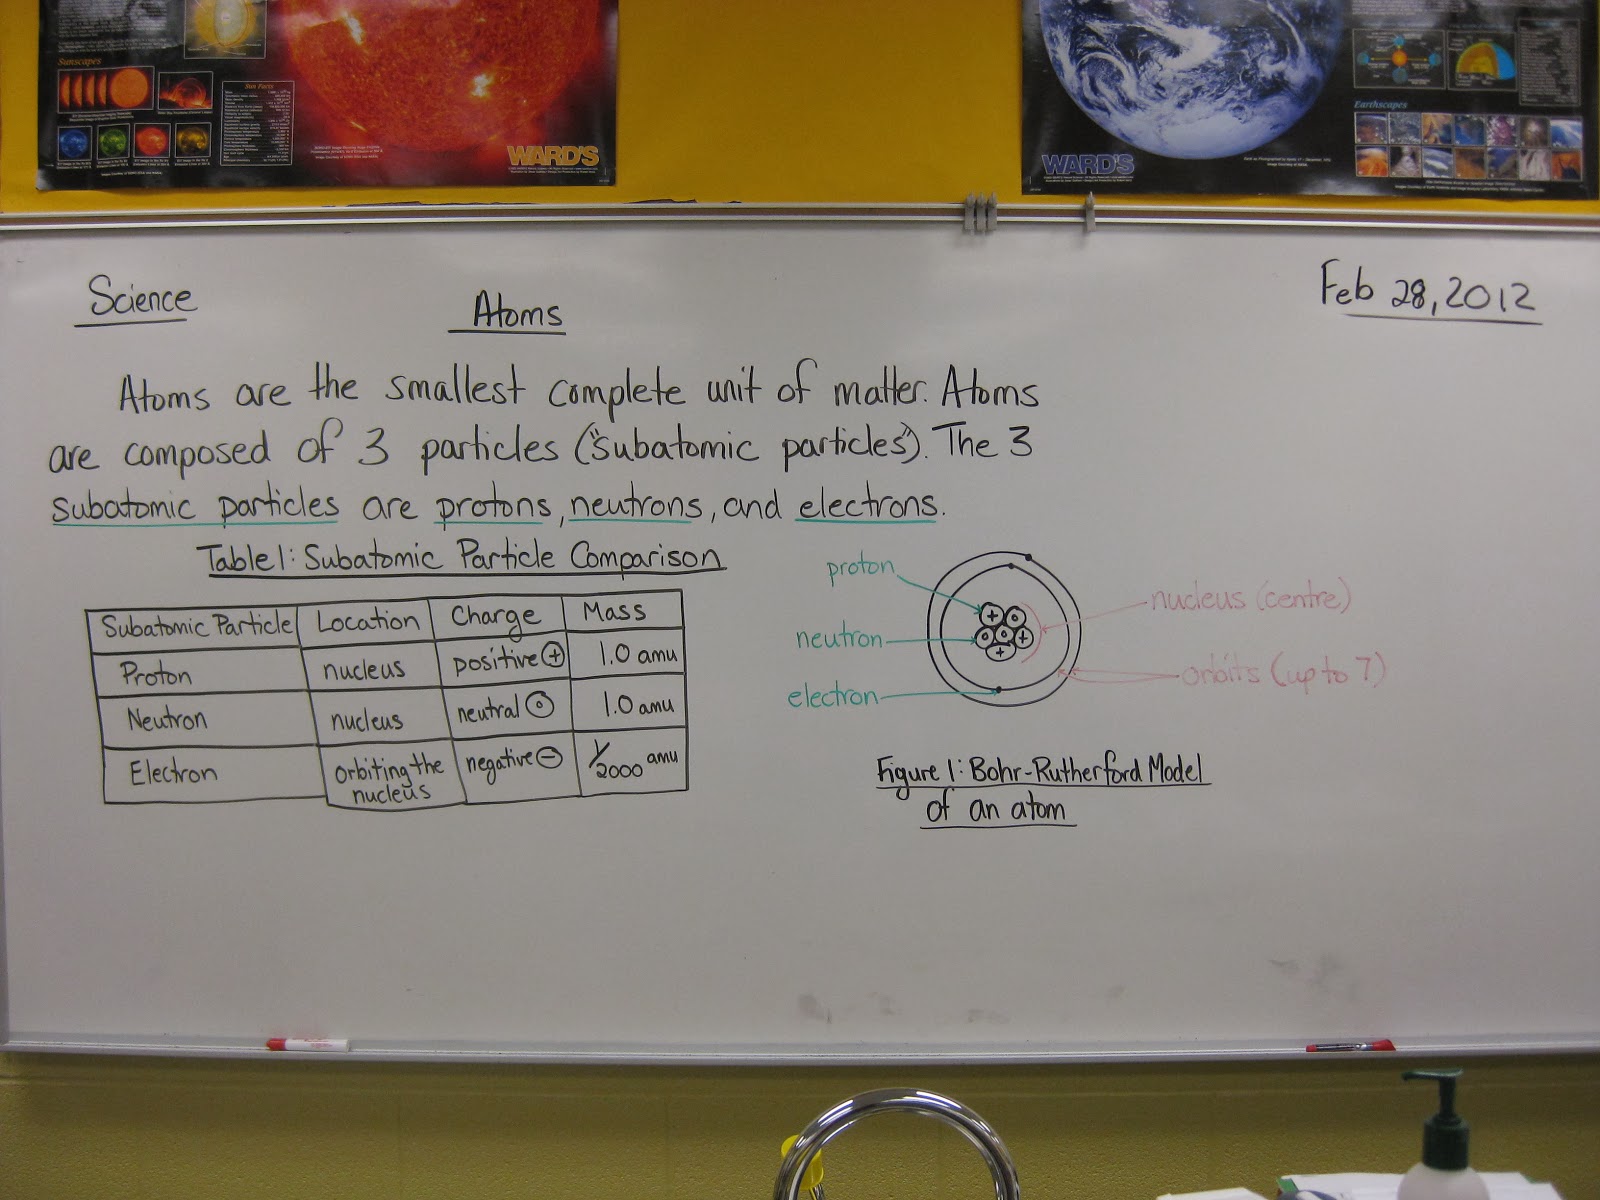 Sunscapes
Sun Facts
WARD'S
WARD'S
Earthscapes
Science
Atoms
Feb 28, 2012
Atoms are the smallest complete unit of matter. Atoms
are composed of 3 particles ("subatomic particles"). The 3
subatomic particles are protons, neutrons, and electrons.
Table 1: Subatomic Particle Comparison
Subatomic Particle Location Charge Mass
Proton nucleus positive ⊕ 1.0 amu
Neutron nucleus neutral ⊙ 1.0 amu
Electron orbiting the nucleus negative ⊖ 1/2000 amu
proton
neutron
electron
nucleus (centre)
orbits (up to 7)
Figure 1: Bohr-Rutherford Model
of an atom